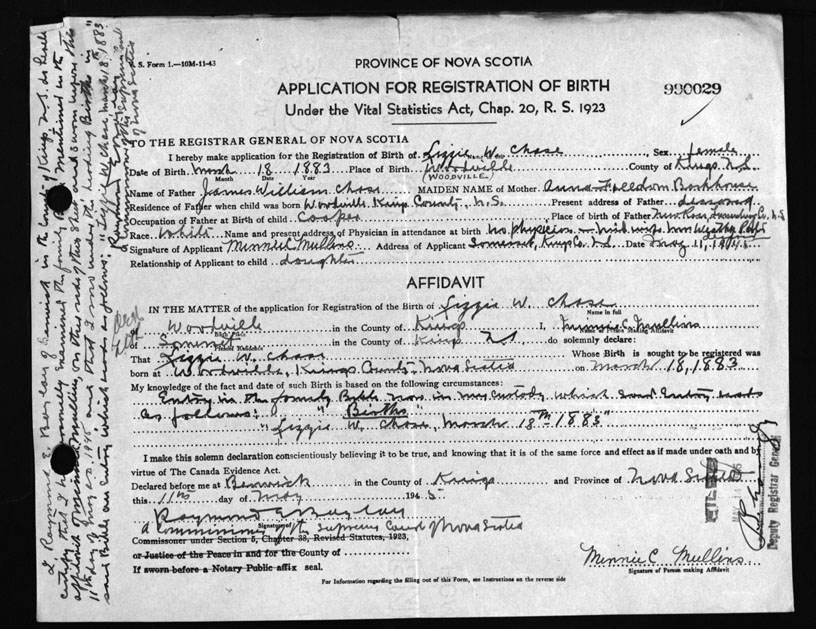 S. Form 1.—10M-11-43
PROVINCE OF NOVA SCOTIA
APPLICATION FOR REGISTRATION OF BIRTH
990029
Under the Vital Statistics Act, Chap. 20, R. S. 1923
TO THE REGISTRAR GENERAL OF NOVA SCOTIA
I hereby make application for the Registration of Birth of Lizzie W. Chase Sex female
Name in full
Date of Birth March 18 1883 Place of Birth Woodville County of Kings N.S.
Month Date Year (WOODVILLE)
Name of Father James William Chase MAIDEN NAME of Mother Anna
Residence of Father when child was born Woodville Kings County N.S. Present address of Father deceased
Occupation of Father at Birth of child Cooper Place of birth of Father New Ross Lunenburg Co. N.S.
Race White Name and present address of Physician in attendance at birth No physician mid wife Mrs
Signature of Applicant Minnie C Mullins Address of Applicant Somerset, Kings Co. N.S. Date May 11, 1945
Relationship of Applicant to child daughter
AFFIDAVIT
IN THE MATTER of the application for Registration of the Birth of Lizzie W. Chase
Name in full
Woodville in the County of Kings I, Minnie C Mullins
Birth Place Person Making Affidavit
of Somerset in the County of Kings N.S. do solemnly declare:
Present Residence
That Lizzie W. Chase Whose Birth is sought to be registered was
born at Woodville, Kings County Nova Scotia on March 18, 1883
My knowledge of the fact and date of such Birth is based on the following circumstances:
Entry in the family Bible now in my custody which said Entry reads
as follows: "Births"
"Lizzie W. Chase, March 18th 1883"
I make this solemn declaration conscientiously believing it to be true, and knowing that it is of the same force and effect as if made under oath and by
virtue of The Canada Evidence Act.
Declared before me at Berwick in the County of Kings and Province of Nova Scotia
this 11th day of May 1945
Raymond E Bezley
Signature of
A Commissioner of the Supreme Court of Nova Scotia
Commissioner under Section 5, Chapter 38, Revised Statutes, 1923,
or Justice of the Peace in and for the County of
If sworn before a Notary Public affix seal.
Minnie C Mullins
Signature of Person making Affidavit
For Information regarding the filling out of this Form, see Instructions on the reverse side
FILED
Deputy Registrar General
I, Raymond E Bezley of Berwick in the County of Kings N.S. do hereby
certify that I have personally examined the family Bible mentioned in the
affidavit of Minnie C Mullins on the other end of this sheet and sworn before me this
11th day of May A.D. 1945 and that I saw under the heading Births in
said Bible an entry which reads as follows: "Lizzie W. Chase, March 18th, 1883"